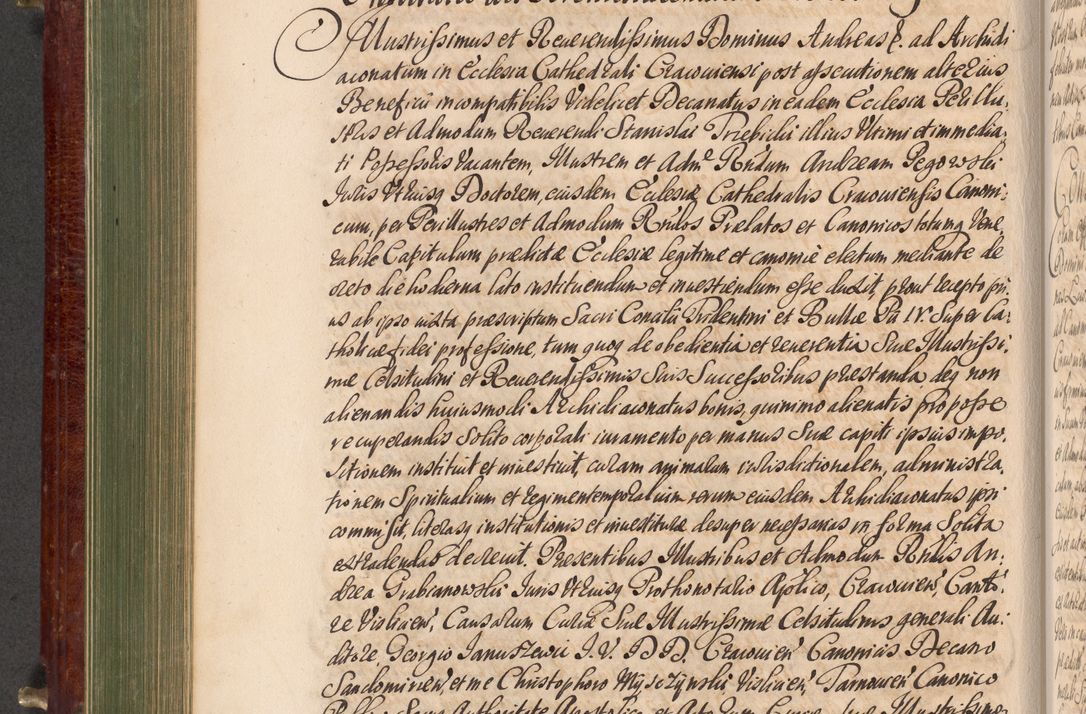 Illustrissimus et Reuerendissimus Dominus Andreas E. ad Archidi
aconatum in Ecclesia Cathedrali Cracouiensi post assecutionem alterius
Beneficii incompatibilis Videlicet Decanatus in eadem Ecclesia Perillu,
stris et Admodum Reuerendi Stanislai Triebicki illius Vltimi et immedia,
ti Possessoris Vacantem, Illustrem et Admd Rndum Andream Pegowski
Juris Vtriusq Doctorem, eiusdem Ecclesiæ Cathedralis Cracouiensis Canoni,
cum, per Perillustres et Admodum Rndos Prælatos et Canonicos totumq Vene,
rabile Capitulum prædictæ Ecclesiæ legitime et canonicè electum mediante de
creto die hodierna lato instituendum et inuestiendum esse duxit, prout recepto pri,
us ab ipso iuxta præscriptum Sacri Concilii Tridentini et Bullæ Pii IV. Super Ca,
tholicæ fidei professione, tum quoq de obedientia et reuerentia Suæ Illustrissi,
mæ Celsitudini et Reuerendissimis Suis Successoribus præstanda deq non
alienandis huiusmodi Archidiaconatus bonis, quinimo alienatis pro posse
recuperandis Solito corporali iuramento per manus Suæ capiti ipsius impo,
sitionem instituit et inuestiuit, curam animarum iurisdictionalem, administra,
tionem Spiritualium et regimen temporalium rerum eiusdem Archidiaconatus ipsi
commisit, literasq institutionis et inuestituræ desuper necessarias in forma Solita
extradendas decreuit. Presentibus Illustribus et Admodum Rndis An,
drea Grabianowski Juris Vtriusq Prothonotario Aplico, Cracouien, Canto,
re Vislicien, Causarum Curiæ Suæ Illustrissimæ Celsitudinis generali Au,
ditore Georgio Januszewic J. V. D D. Cracouien Canonicis Decano
Sandomirien, et me Christophoro Mysczynski Vislicien Tarnouien Canonico